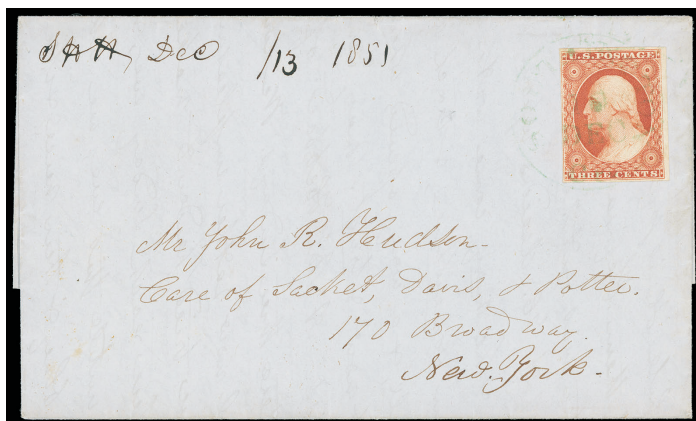 Dec /13 1851
U.S. POSTAGE
THREE CENTS
Mr John R. Hudson-
Care of Sacket, Davis, & Potter.
170 Broadway.
New York-